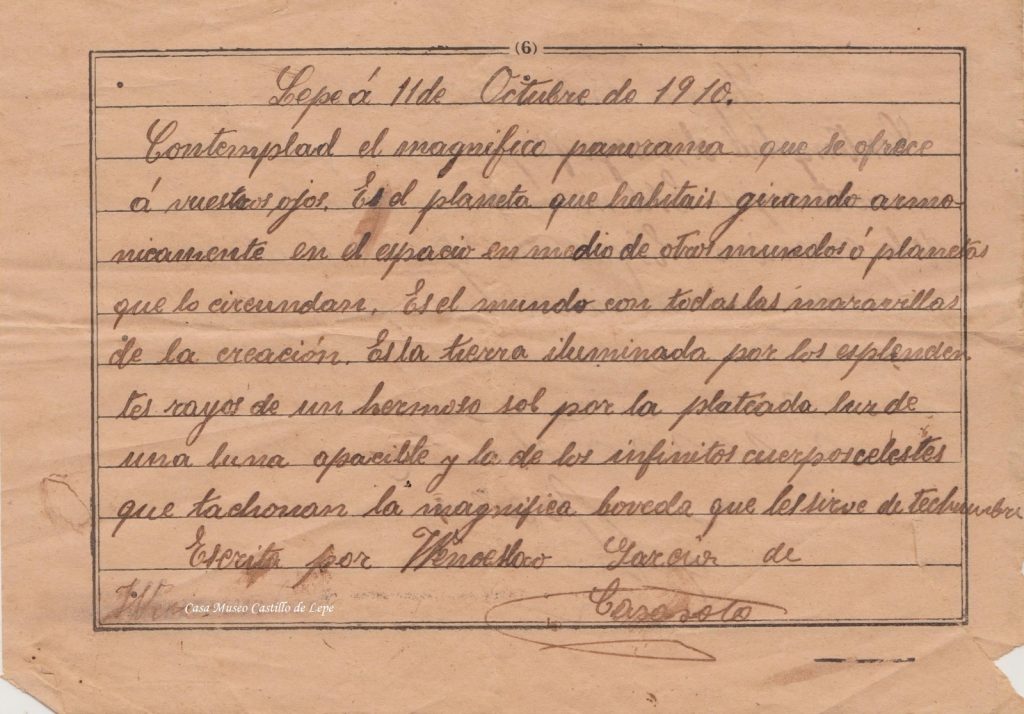 (6)
Lepe á 11 de Octubre de 1910.
Contemplad el magnifico panorama que se ofrece
á vuestros ojos. Es el planeta que habitais girando armo-
nicamente en el espacio en medio de otros mundos ó planetas
que lo circundan. Es el mundo con todas las maravillas
de la creación. Es la tierra iluminada por los esplenden
tes rayos de un hermoso sol por la plateada luz de
una luna apacible y la de los infinitos cuerpos celestes
que tachonan la magnifica boveda que les sirve de techumbre
Escrita por Wenceslao Garcia de
Casa Museo Castillo de Lepe
Casasola